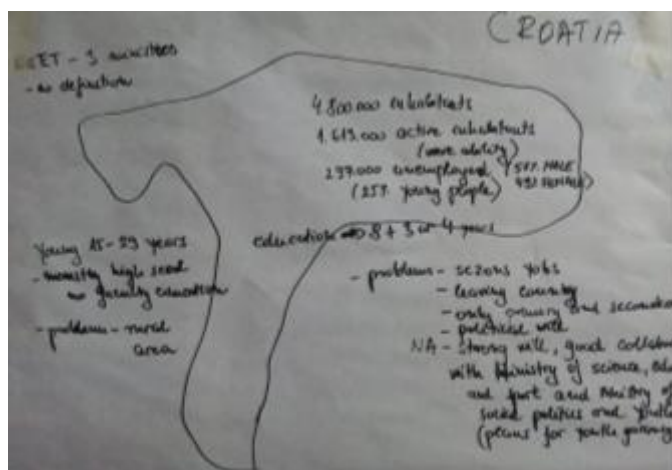 CROATIA
ET - 3 ministries
- no definition
4.800.000 inhabitants
1.613.000 active inhabitants
(work ability)
297.000 unemployed (51% MALE
49% FEMALE)
(25% young people)
education → 8 + 3 or 4 years
Young 15-29 years
- mostly high
no faculty education
- problem - rural
area
- problems - sezons jobs
- leaving country
- only primary and secondar
- political will
NA - strong will, good collabor
with Ministry of science, edu
and sport and Ministry of
social politics and youth
(plans for youth